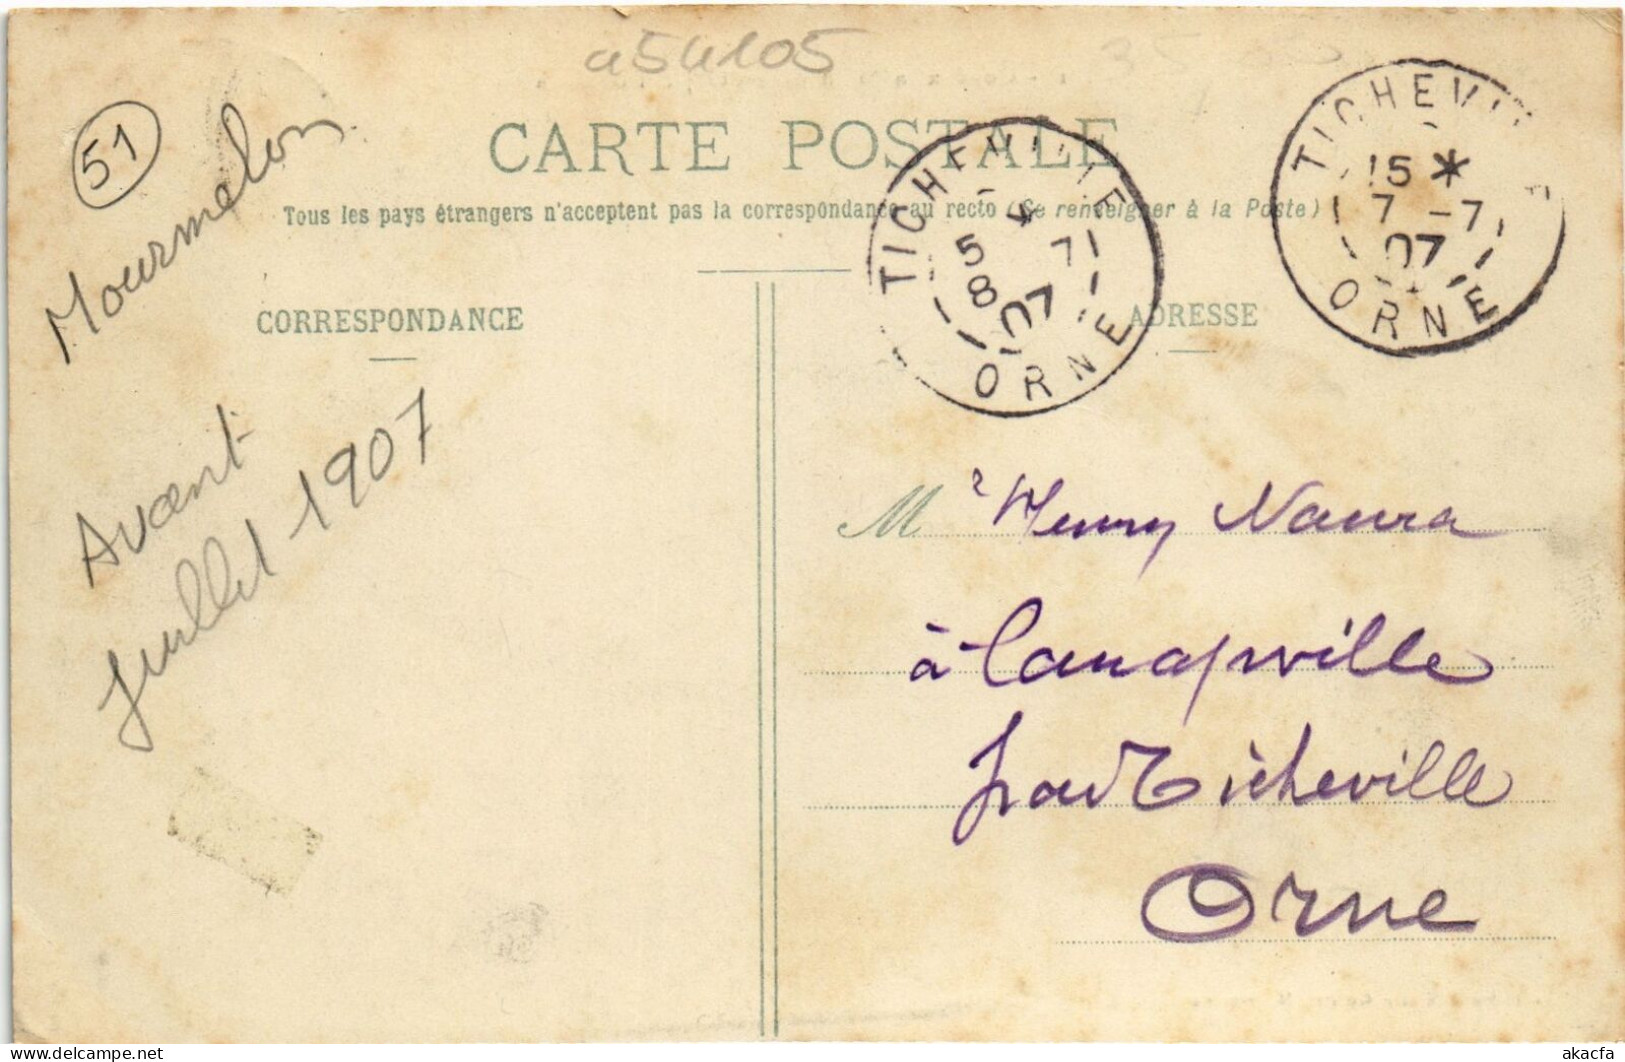 a54105
51
Mourmelon
CARTE POSTALE
Tous les pays étrangers n'acceptent pas la correspondance au recto (Se renseigner à la Poste)
TICHEVILLE
5 *
8 7
07
ORNE
TICHEVI
15 *
7 -7
07
ORNE
CORRESPONDANCE
ADRESSE
Avant
Juillet 1907
M r Henry Naura
à Canapville
par Ticheville
Orne
delcampe.net
akacfa